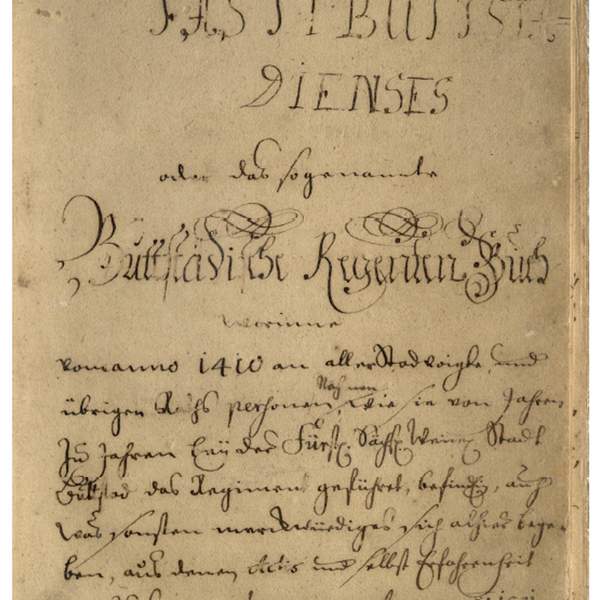 FASTI BUTTSTA-
DIENSES
oder das sogenannte
Buttstädische Regenten Buch
worinne
vom anno 1410 an aller Stadvoigte, und
übrigen Raths personen Nahmen, wie sie von Jahren
zu Jahren bey der Fürstl. Sächs. Weim. Stadt
Buttstad das Regiment geführet, befindl., auch
was sonsten merckwürdiges sich alhier bege-
ben, aus denen Actis und selbst Erfahrenheit